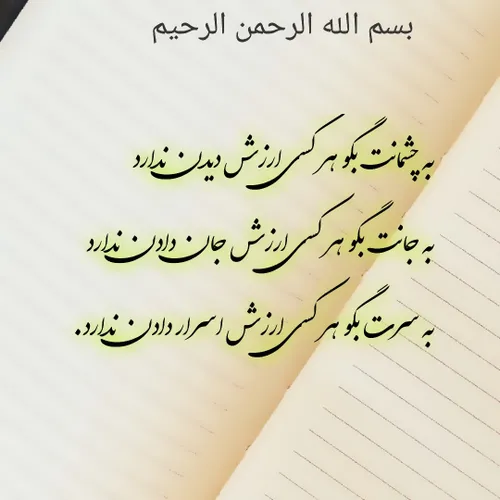 بسم الله الرحمن الرحیم
به چشمانت بگو هر کسی ارزش دیدن ندارد
به جانت بگو هر کسی ارزش جان دادن ندارد
به سرت بگو هر کسی ارزش اسرار دادن ندارد.